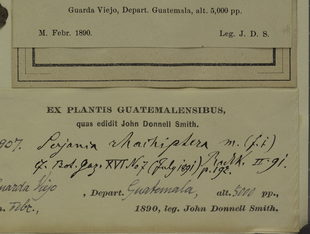 Guarda Viejo, Depart. Guatemala, alt. 5,000 pp.
M. Febr. 1890. Leg. J. D. S.
EX PLANTIS GUATEMALENSIBUS,
quas edidit John Donnell Smith.
907. Serjania rhachiptera m. (f. i)
cf. Bot. Gaz. XVI No 7 (July 1891) p. 192. Radlk. II 91.
Guarda Viejo, Depart. Guatemala, alt. 5000 pp.,
Febr., 1890, leg. John Donnell Smith.